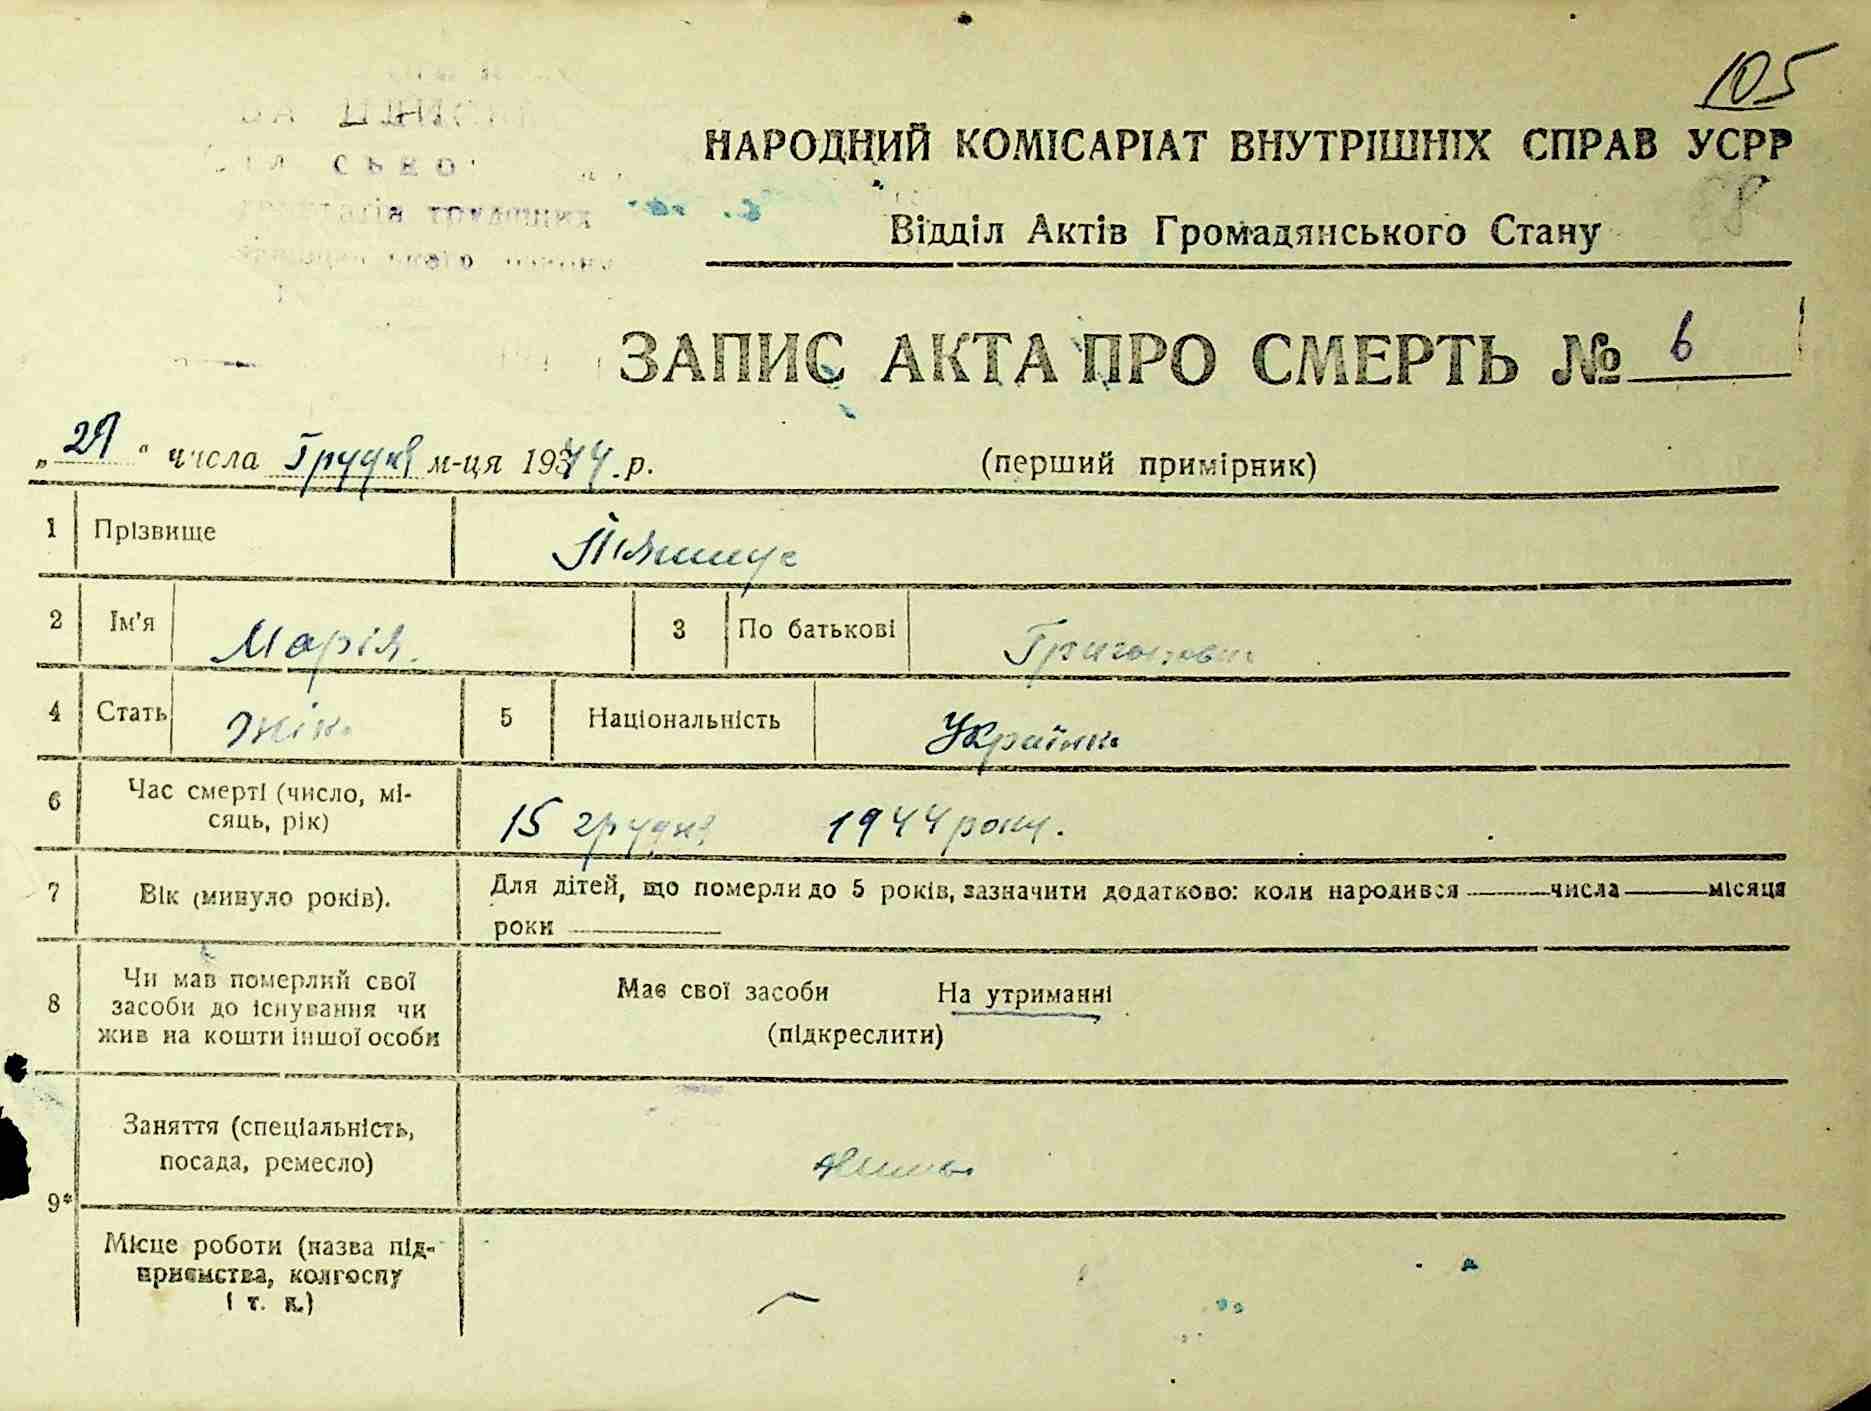 105
НАРОДНИЙ КОМІСАРІАТ ВНУТРІШНІХ СПРАВ УСРР
88
Відділ Актів Громадянського Стану
ЗАПИС АКТА ПРО СМЕРТЬ № 6
числа Грудня м-ця 1944 р. (перший примірник)
1 Прізвище
2 Ім'я Марія 3 По батькові Григоровн
4 Стать жін. 5 Національність Українка
6 Час смерті (число, мі-
сяць, рік) 15 грудня 1944 року.
7 Вік (минуло років). Для дітей, що померли до 5 років, зазначити додатково: коли народився числа місяця
роки
8 Чи мав померлий свої
засоби до існування чи
жив на кошти іншої особи
Має свої засоби На утриманні
(підкреслити)
9* Заняття (спеціальність,
посада, ремесло)
Місце роботи (назва під-
приємства, колгоспу
і т. п.)